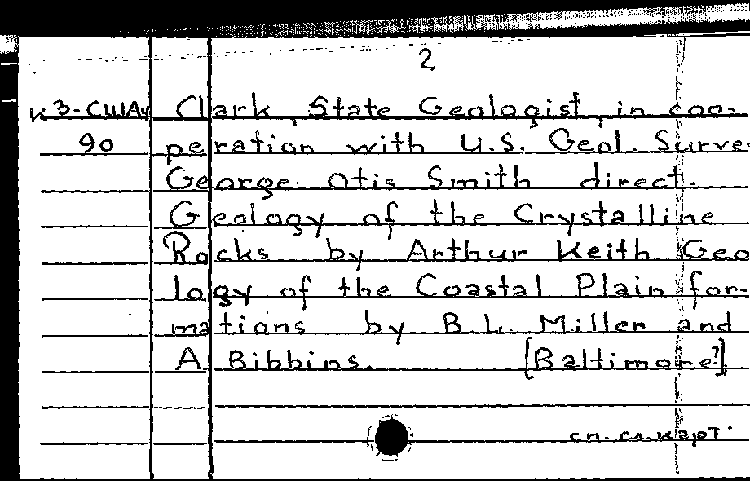 2
к 3-CШAy Clark, State Geologist, in coo-
90 peration with U.S. Geol. Surve
George Otis Smith direct.
Geology of the Crystalline
Rocks by Arthur Keith Geo
logy of the Coastal Plain for-
mations by B.L. Miller and
A Bibbins. [Baltimore?]
см. сл. карт.